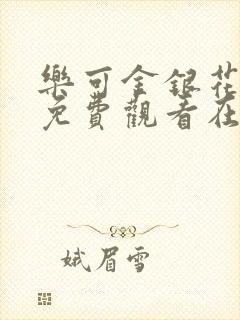 樂可金銀花
免費觀看在
娥眉雪